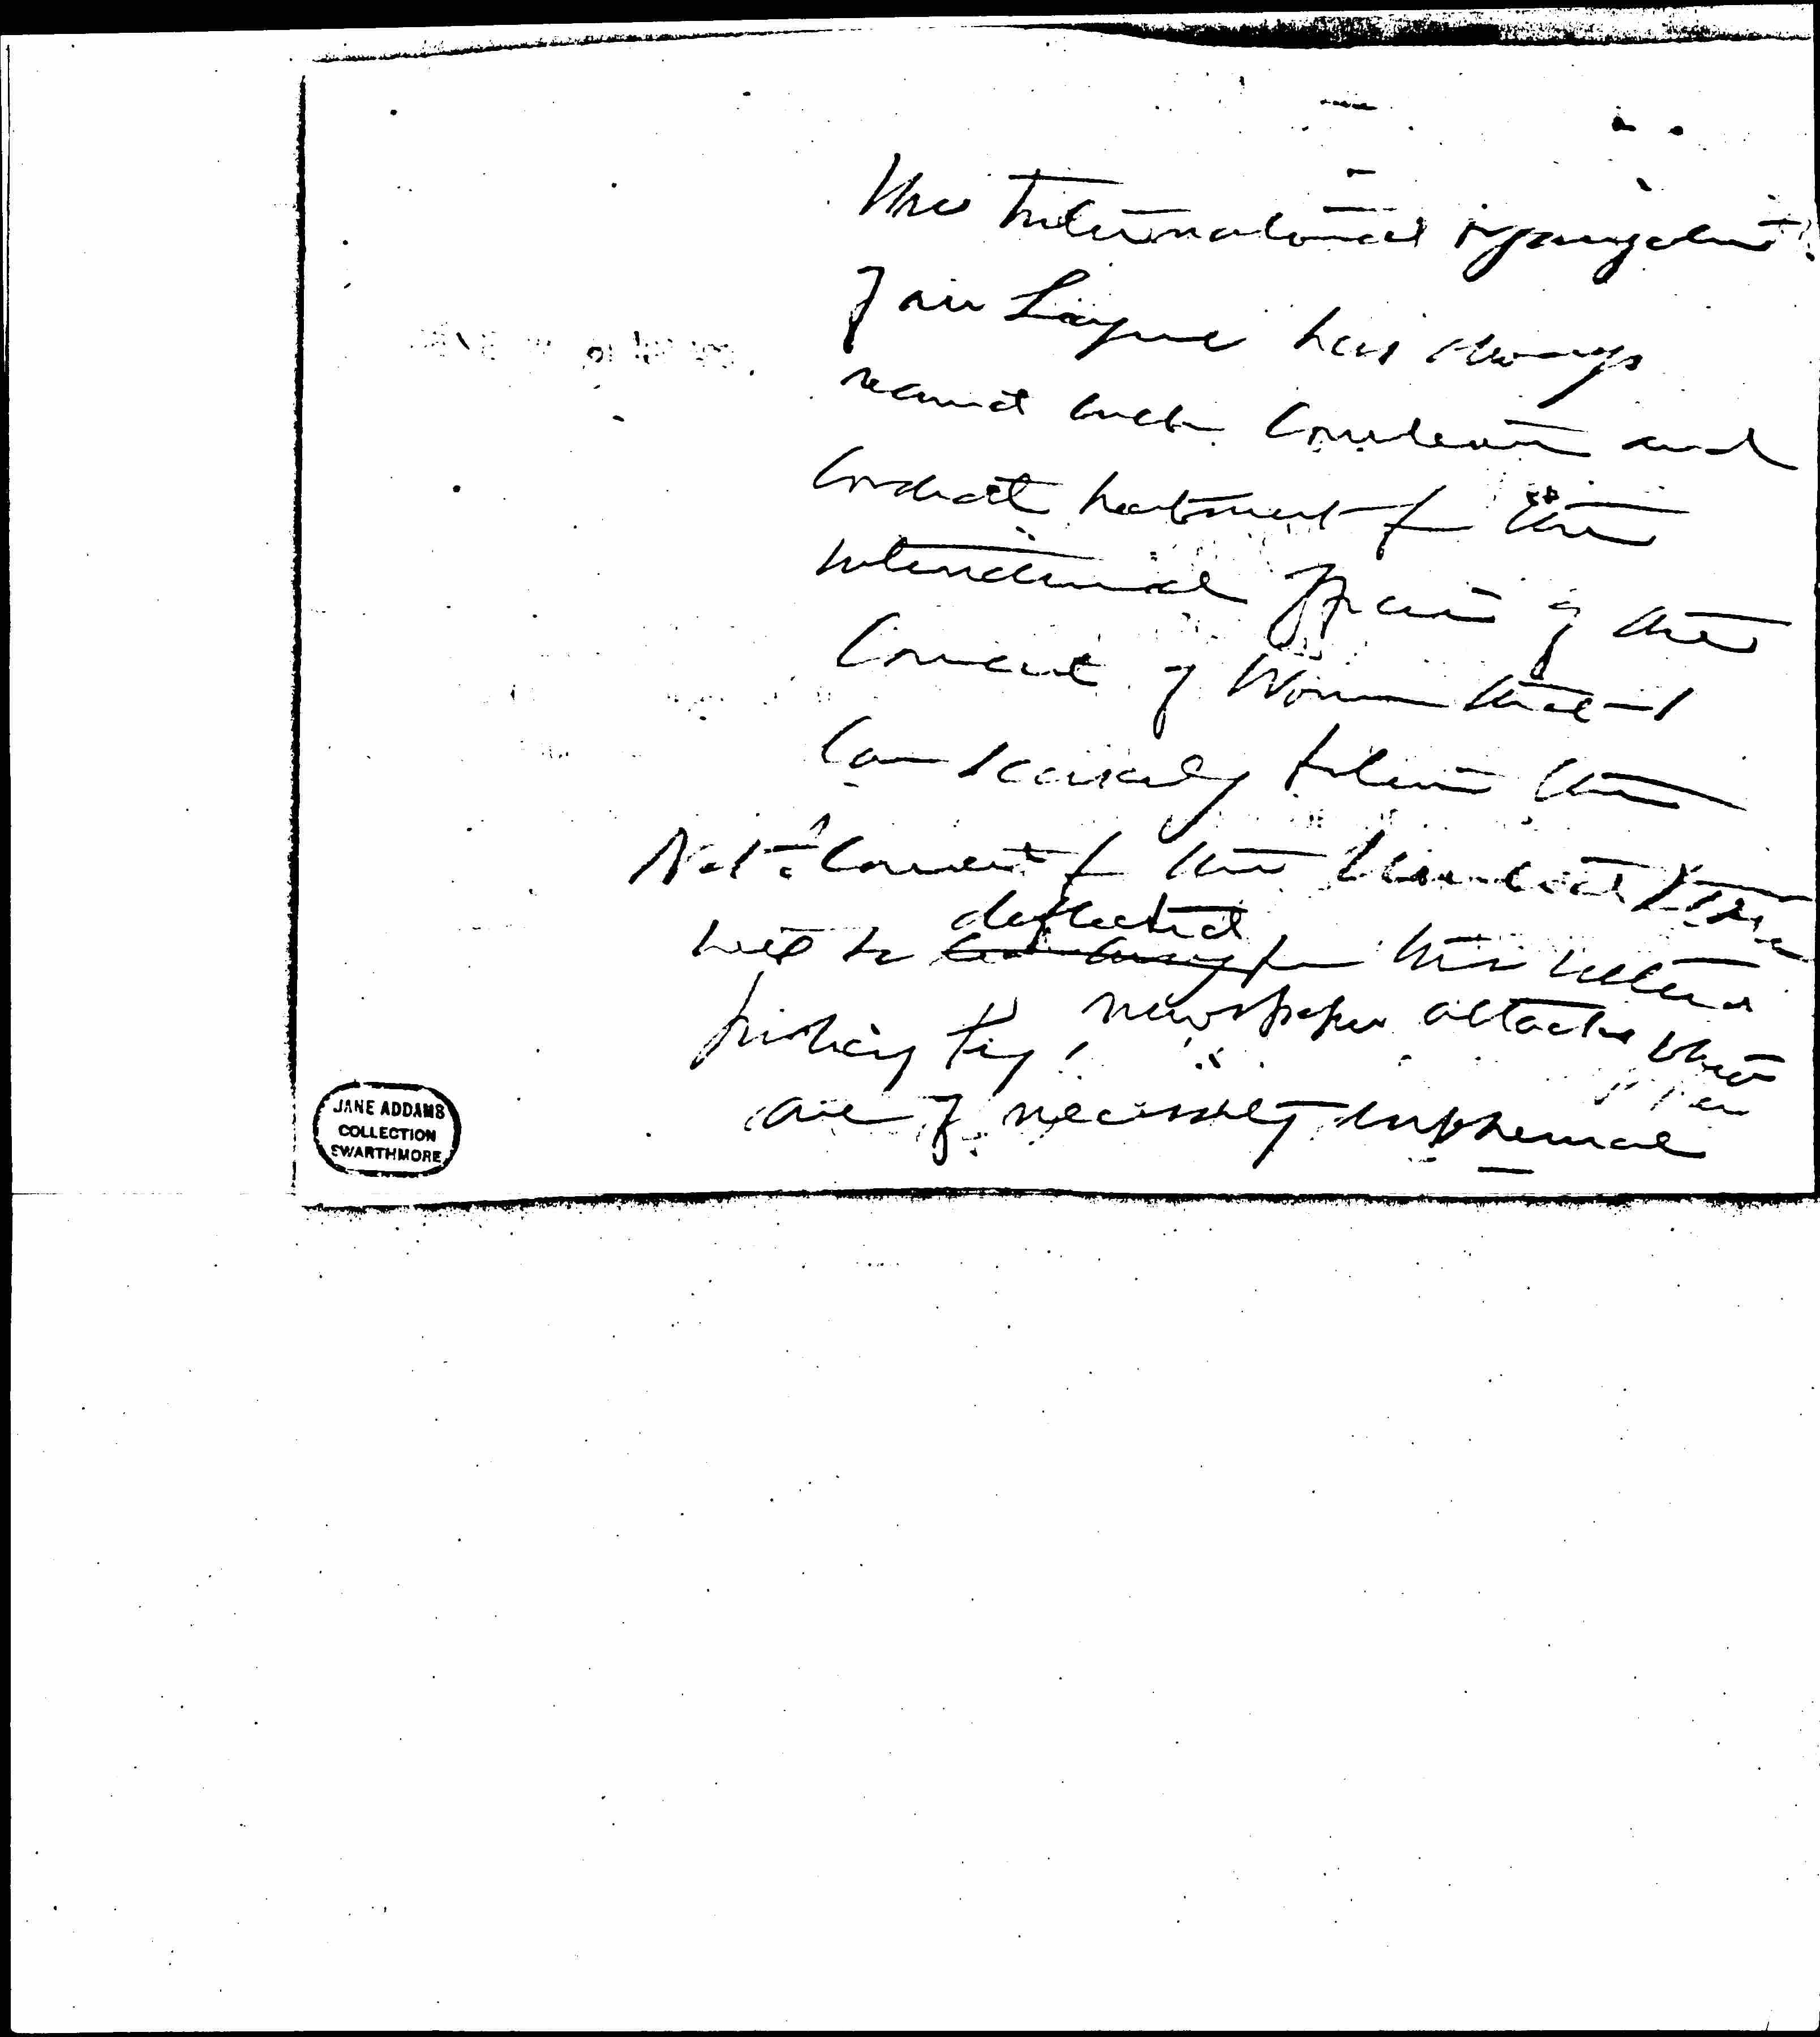 The International organization
of our League has always
received such courteous and
cordial treatment from the
international officers of the
Council of Women that I
can scarcely believe the
Nat'l Council of the United States
will be deflected from this
policy by newspaper attacks which
are of necessity ephemeral
JANE ADDAMS
COLLECTION
SWARTHMORE